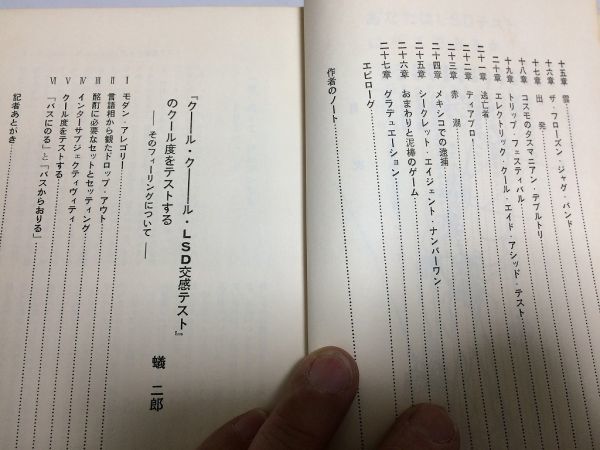 十五章 雲
十六章 ザ・フローズン・ジャグ・バンド
十七章 出発
十八章 コスモのタスマニアン・デブルトリ
十九章 トリップ・フェスティバル
二十章 エレクトリック・クール・エイド・アシッド・テスト
二十一章 逃亡者
二十二章 ティアブロー
二十三章 赤潮
二十四章 メキシコでの逮捕
二十五章 シークレット・エイジェント・ナンバーワン
二十六章 おまわりと泥棒のゲーム
二十七章 グラデュエーション
エピローグ
作者のノート
『クール・クール・LSD交感テスト』
のクール度をテストする
——そのフィーリングについて——
蟻二郎
I モダン・アレゴリー
II 言語相から観たドロップ・アウト
III 酩酊に必要なセットとセッティング
IV インターサブジェクティヴィティ
V クール度をテストする
VI 「バスにのる」と「バスからおりる」
記者あとがき